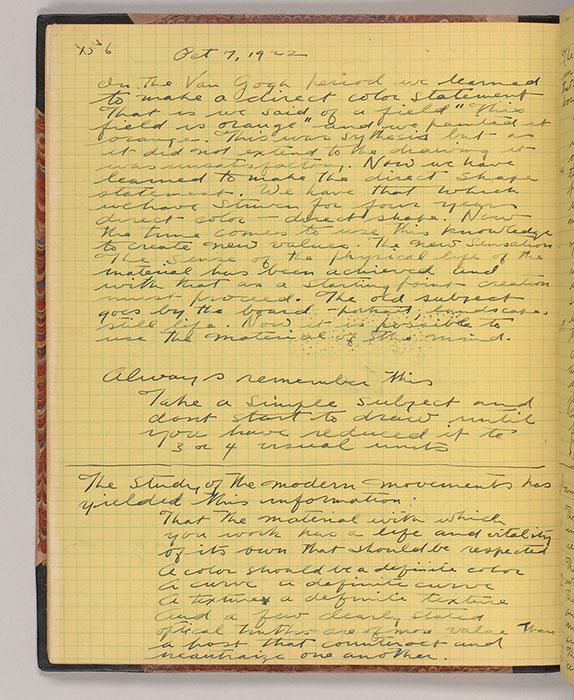 Oct 7, 1922
In the Van Gogh period we learned
to make a direct color statement
That is we said of a field "This
field is orange" and we painted it
orange. This was sythesis but as
it did not extend to the drawing it
was unsatisfactory. Now we have
learned to make the direct shape
statement. We have that which
we have struven for four years
direct color – direct shape. Now
the time comes to use this knowledge
to create new values. The new sensation
The sense of the physical life of the
material has been achieved and
with that as a starting point creation
must proceed. The old subject
goes by the board – portrait, landscape,
still life. Now it is possible to
use the material of the mind.
Always remember this
Take a simple subject and
dont start to draw until
you have reduced it to
3 or 4 visual units
The study of the modern movements has
yielded this information:
That the material with which
you work has a life and vitality
of its own that should be respected
A color should be a definite color
A curve a definite curve
A texture a definite texture
and a few clearly stated
optical truths are of more value than
a host that counteract and
neutralize one another.